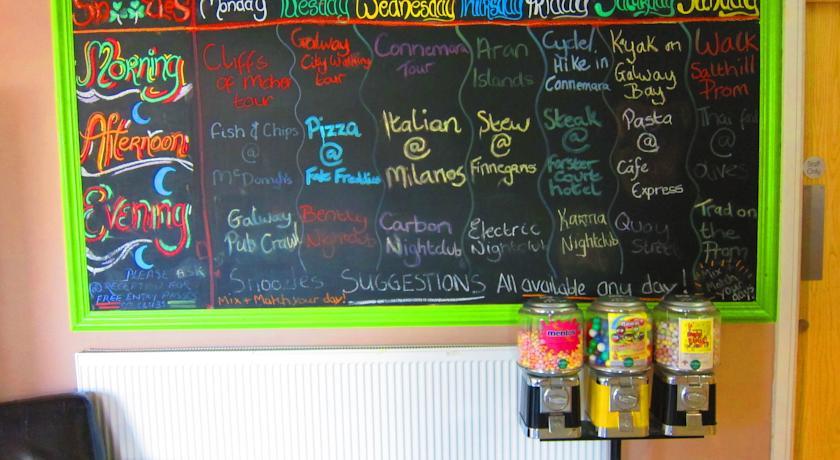 Monday Tuesday Wednesday Thursday Friday Saturday Sunday
Morning
Cliffs
of Moher
tour
Galway
City Walking
tour
Connemara
Tour
Aran
Islands
Cycle/
Hike in
Connemara
Kyak on
Galway
Bay
Walk
Salthill
Prom
Afternoon
Fish & Chips
@
McDonaghs
Pizza
@
Fat Freddies
Italian
@
Milanos
Stew
@
Finnegans
Steak
@
Forster
Court
Hotel
Pasta
@
Cafe
Express
Thai food
@
Olives
Evening
Galway
Pub Crawl
Bently
Nightclub
Carbon
Nightclub
Electric
Nightclub
Karma
Nightclub
Quay
Street
Trad on
the
Prom
PLEASE ASK
@ RECEPTION FOR
FREE ENTRY PASSES
Snoozles SUGGESTIONS All available any day!
Mix + Match your day!
Mix
Match
your
days!
mentos
Staff
Only